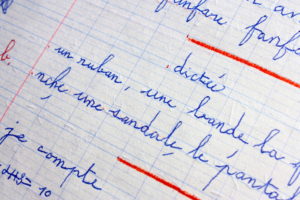 fanfare fanf
dictée
b. un ruban, une bande la
riche, une sandale, le pantal
je compte
= 10